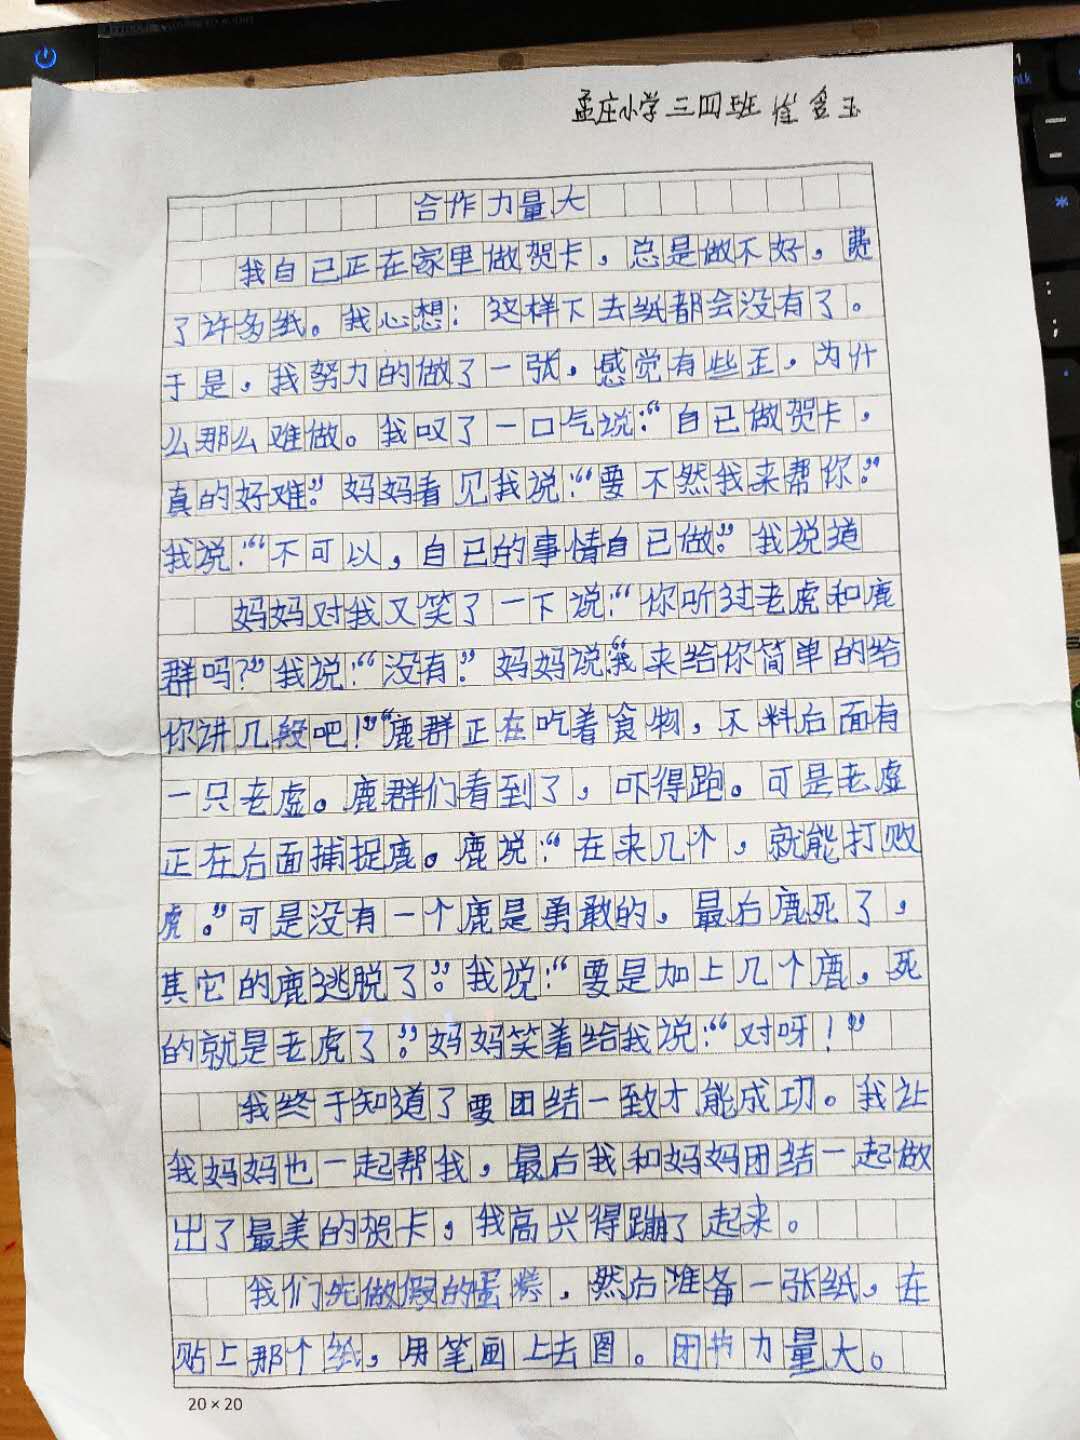 孟庄小学三四班崔含玉
合作力量大
我自己正在家里做贺卡，总是做不好，费
了许多纸。我心想：这样下去纸都会没有了。
于是，我努力的做了一张，感觉有些歪，为什
么那么难做。我叹了一口气说：“自己做贺卡，
真的好难。”妈妈看见我说：“要不然我来帮你。”
我说：“不可以，自己的事情自己做。”我说道
妈妈对我又笑了一下说：“你听过老虎和鹿
群吗？”我说：“没有。”妈妈说：“我来给你简单的给
你讲几段吧！”“鹿群正在吃着食物，不料后面有
一只老虚。鹿群们看到了，吓得跑。可是老虚
正在后面捕捉鹿。鹿说：“在来几个，就能打败
虎。”可是没有一个鹿是勇敢的，最后鹿死了，
其它的鹿逃脱了。”我说：“要是加上几个鹿，死
的就是老虎了。”妈妈笑着给我说：“对呀！”
我终于知道了要团结一致才能成功。我让
我妈妈也一起帮我，最后我和妈妈团结一起做
出了最美的贺卡，我高兴得蹦了起来。
我们先做假的蛋糕，然后准备一张纸，在
贴上那个纸，用笔画上去图。团结力量大。
20×20